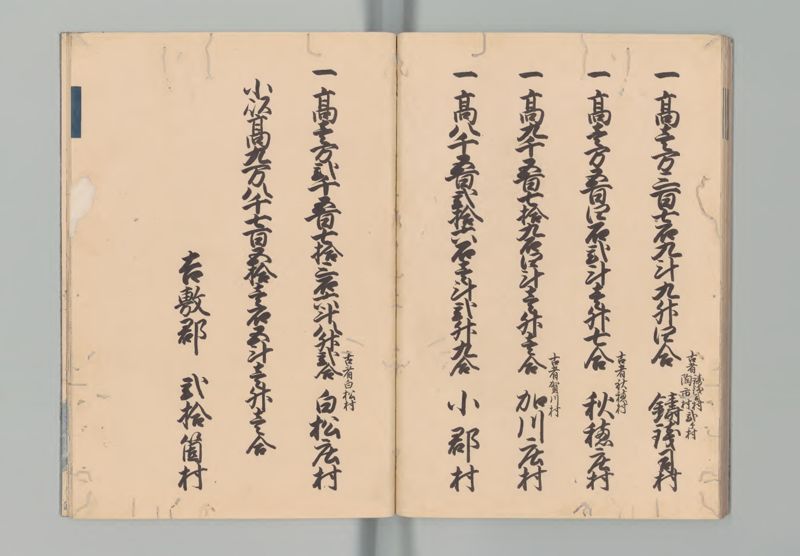 一高壱万三百七石九斗九升四合 鋳銭司村
一高壱万五百四石弐斗壱升七合 古者秋穂村 秋穂庄村
一高九千五百七拾九石四斗壱升壱合 古者賀川村 加川庄村
一高八千五百弐拾六石壱斗弐升九合 小郡村
一高壱万弐千五百七拾三石六斗八升弐合 古者白松村 白松庄村
小以高九万八千七百五拾三石五斗壱升壱合
吉敷郡 弐拾箇村